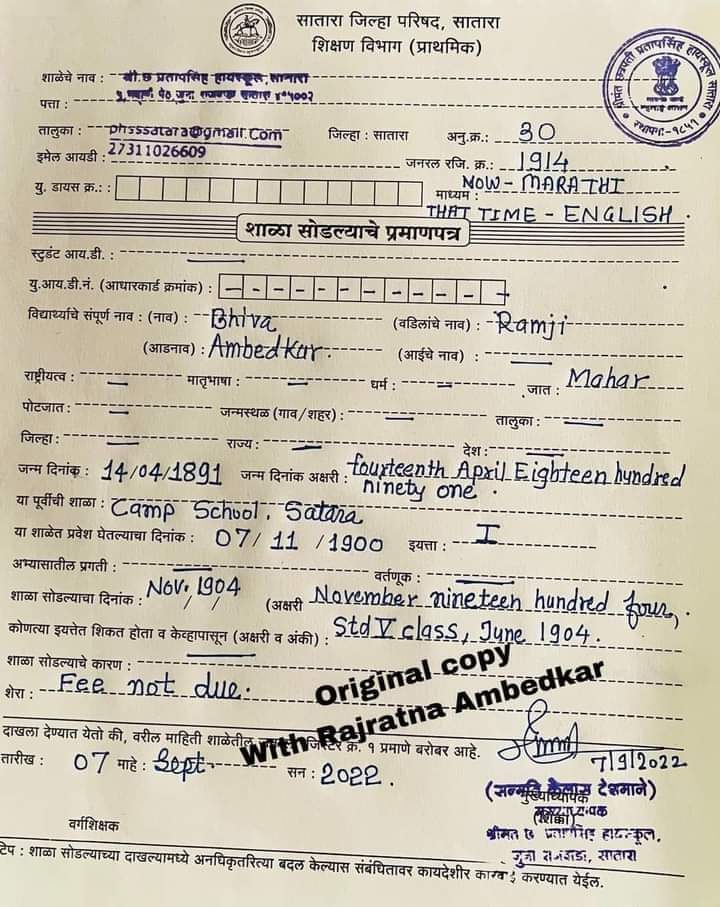 सातारा जिल्हा परिषद, सातारा
शिक्षण विभाग (प्राथमिक)
शाळेचे नाव : श्री. छ प्रतापसिंह हायस्कूल, सातारा
पत्ता : पेठ, जुना राजवाडा सातारा ४१५००२
तालुका : phsssatara@gmail.com जिल्हा : सातारा अनु.क्र.: 30
इमेल आयडी : 27311026609 जनरल रजि. क्र.: 1914
यु. डायस क्र.: : माध्यम : NOW - MARATHI
THAT TIME - ENGLISH.
शाळा सोडल्याचे प्रमाणपत्र
स्टुडंट आय.डी. :
यु.आय.डी.नं. (आधारकार्ड क्रमांक) :
विद्यार्थ्याचे संपूर्ण नाव : (नाव) : Bhiva (वडिलांचे नाव) : Ramji
(आडनाव) : Ambedkar. (आईचे नाव) : —
राष्ट्रीयत्व : — मातृभाषा : — धर्म : — जात : Mahar
पोटजात : — जन्मस्थळ (गाव/शहर) : — तालुका : —
जिल्हा : — राज्य : — देश : —
जन्म दिनांक : 14/04/1891 जन्म दिनांक अक्षरी : fourteenth April Eighteen hundred
ninety one.
या पूर्वीची शाळा : Camp School, Satara
या शाळेत प्रवेश घेतल्याचा दिनांक : 07/11/1900 इयत्ता : I
अभ्यासातील प्रगती : — वर्तणूक : —
शाळा सोडल्याचा दिनांक : Nov. 1904 / / (अक्षरी November nineteen hundred four,
कोणत्या इयत्तेत शिकत होता व केव्हापासून (अक्षरी व अंकी) : Std V class, June 1904.
शाळा सोडल्याचे कारण : —
शेरा : Fee not due.
Original copy
With Rajratna Ambedkar
दाखला देण्यात येतो की, वरील माहिती शाळेतील रजिस्टर क्र. १ प्रमाणे बरोबर आहे.
तारीख : 07 माहे : Sept. सन : 2022.
7/9/2022
(सन्मती कैलास देशमाने)
मुख्याध्यापक
(शिक्का)
वर्गशिक्षक
श्रीमंत छ प्रतापसिंह हायस्कूल,
जुना राजवाडा, सातारा
टिप : शाळा सोडल्याच्या दाखल्यामध्ये अनधिकृतरित्या बदल केल्यास संबंधितावर कायदेशीर कारवाई करण्यात येईल.
श्रीमंत छत्रपती प्रतापसिंह हायस्कूल सातारा
स्थापना-१८५१